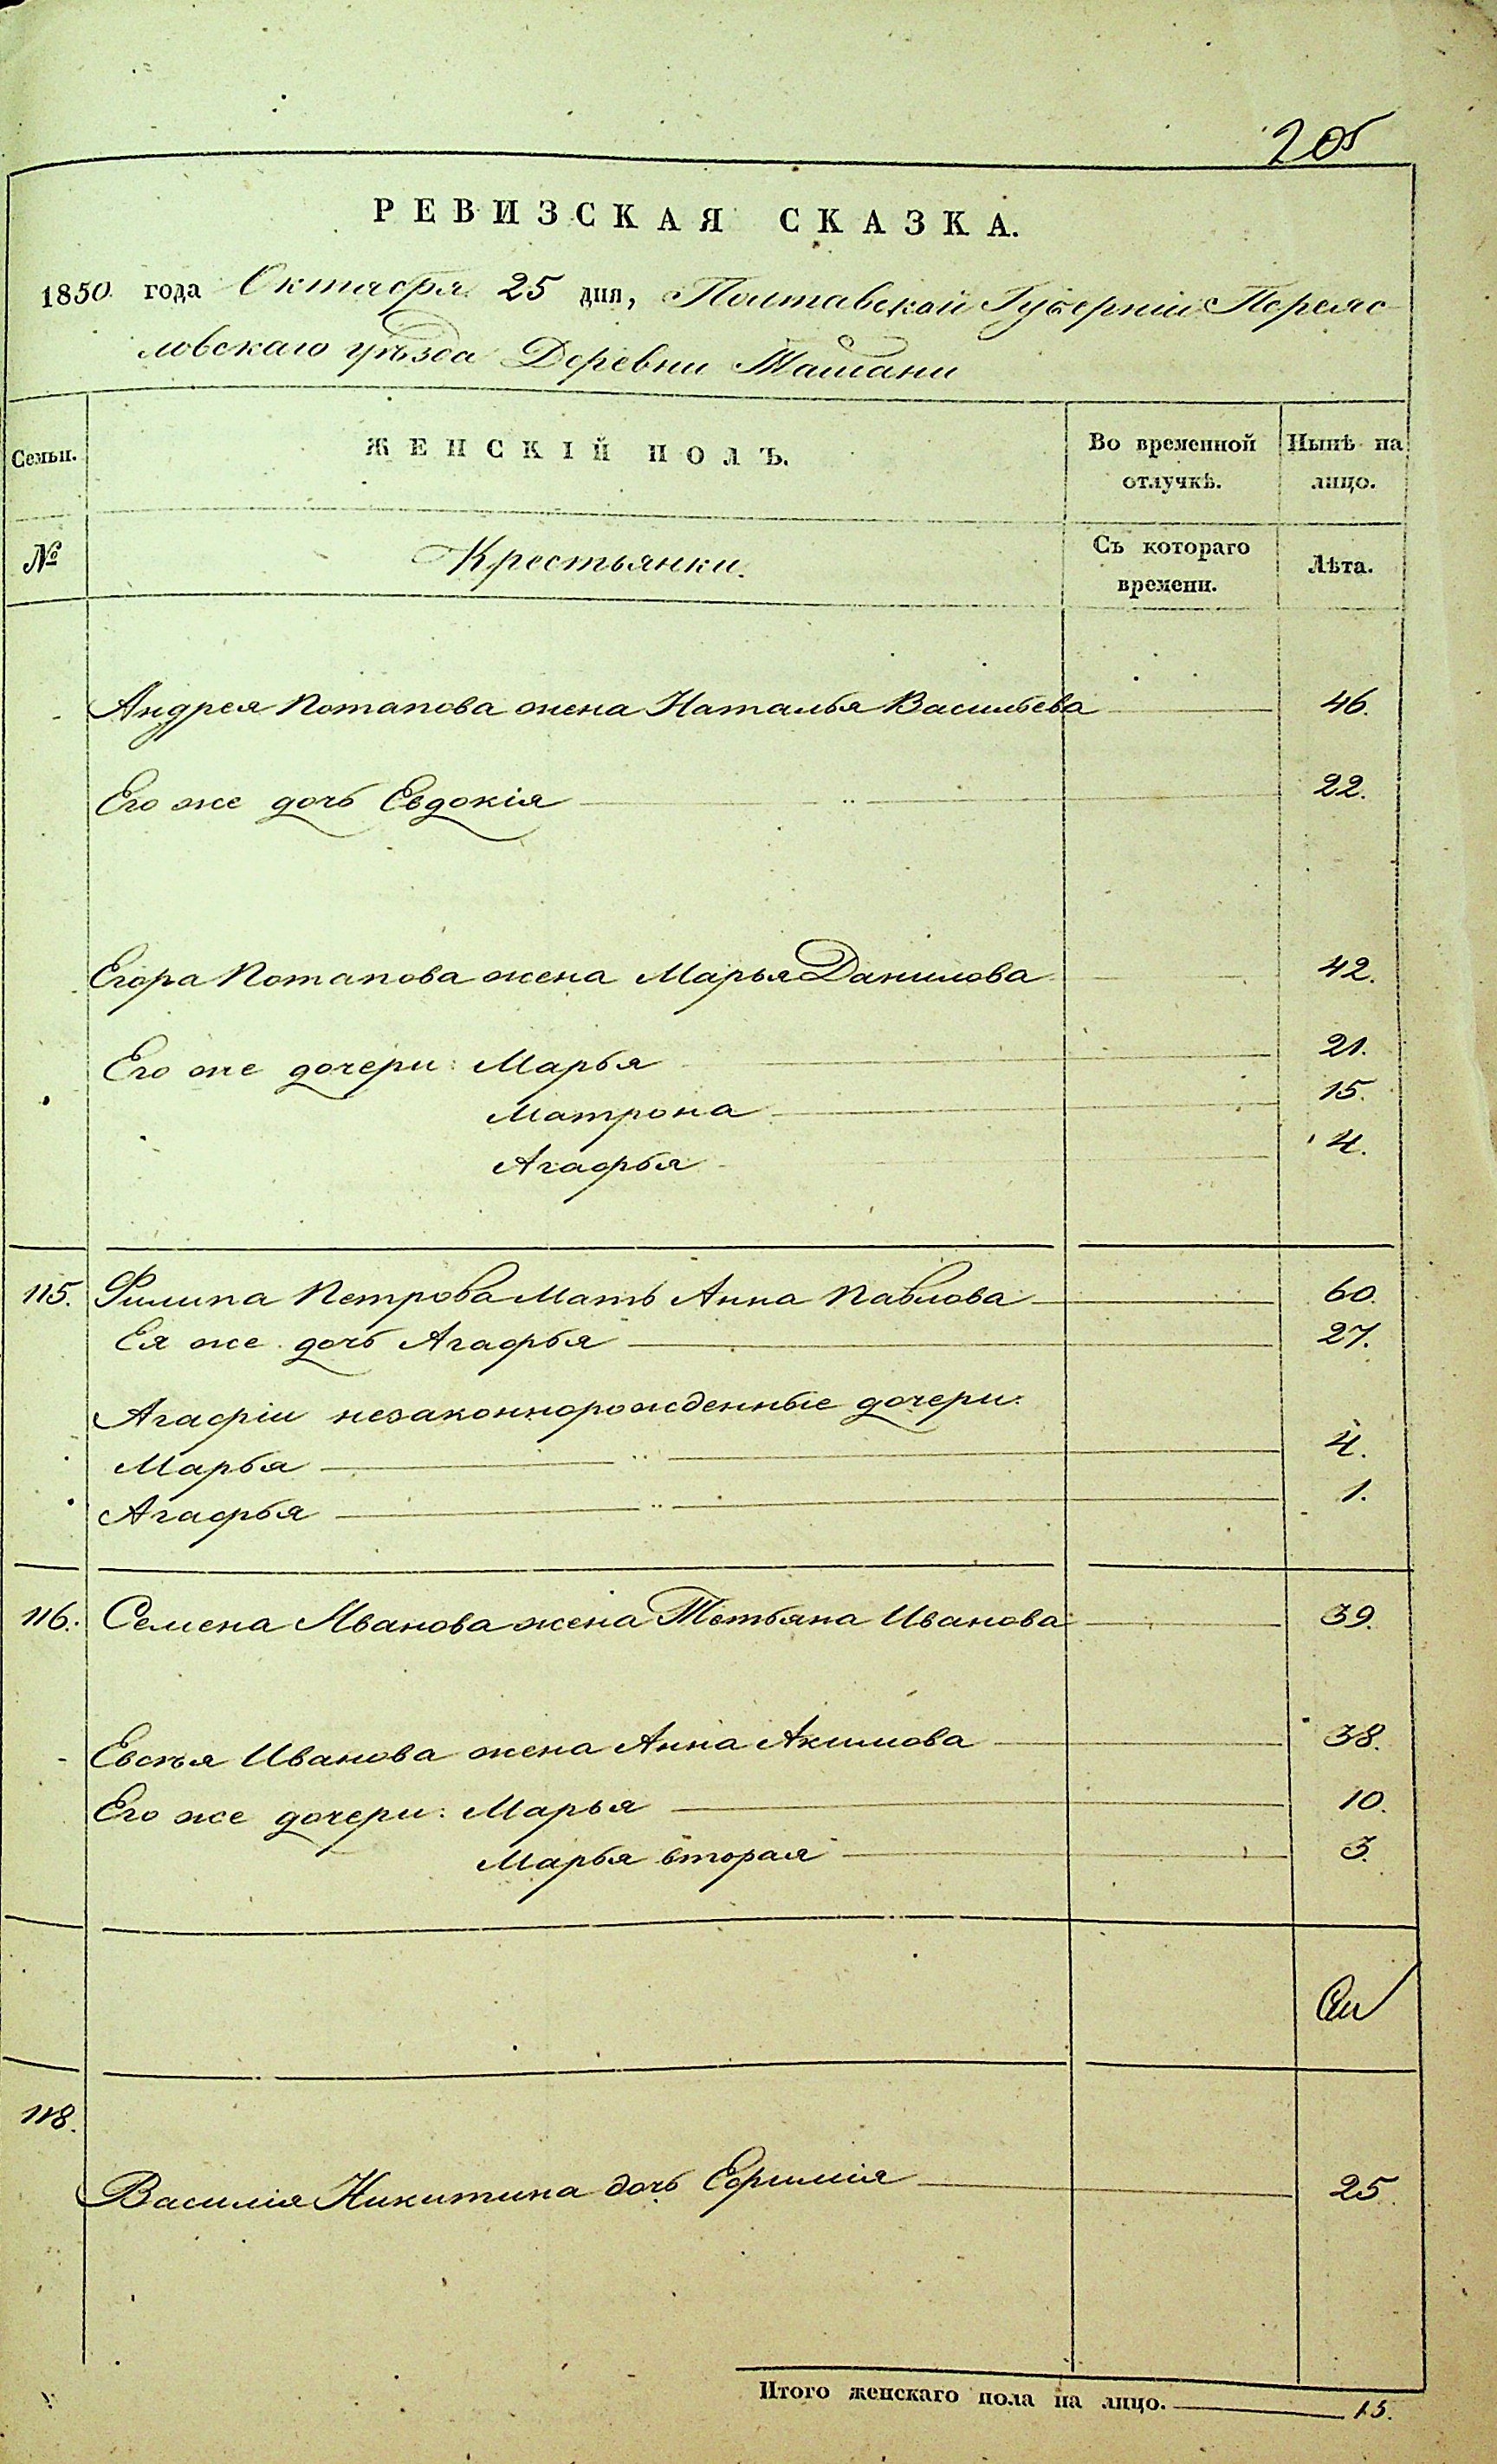 205
РЕВИЗСКАЯ СКАЗКА.
1850 года Октября 25 дня, Полтавской Губерніи Переяс-
ловскаго уѣзда Деревни Ташани
Семьи. ЖЕНСКІЙ ПОЛЪ. Во временной отлучкѣ. Нынѣ на лицо.
№ Крестьянки. Съ котораго времени. Лѣта.
Андрея Потапова жена Наталья Васильева 46.
Его же дочь Евдокія 22.
Егора Потапова жена Марья Данилова 42.
Его же дочери: Марья 21.
Матрона 15.
Агафья 4.
115. Филипа Петрова Мать Анна Павлова 60.
Ея же дочь Агафья 27.
Агафіи незаконнорожденные дочери:
Марья 4.
Агафья 1.
116. Семена Иванова жена Тетьяна Иванова 39.
Евсѣя Иванова жена Анна Акимова 38.
Его же дочери: Марья 10.
Марья вторая 3.
118.
Василія Никитина дочь Ефимія 25
Итого женскаго пола на лицо. 15.